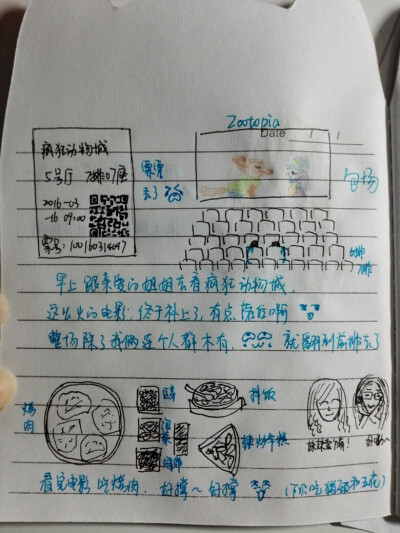 Zootopia
Date / /
疯狂动物城
5号厅 7排07座
2016-03
-16 09:00
票号:
票票
丢了
包场
6排
7排
早上跟亲爱的姐姐去看疯狂动物城,
这么火的电影,终于补上了,有点
整场除了我俩连个人都木有, 就
烤肉
拌饭
辣炒年糕
看完电影吃烤肉, 好撑~好撑